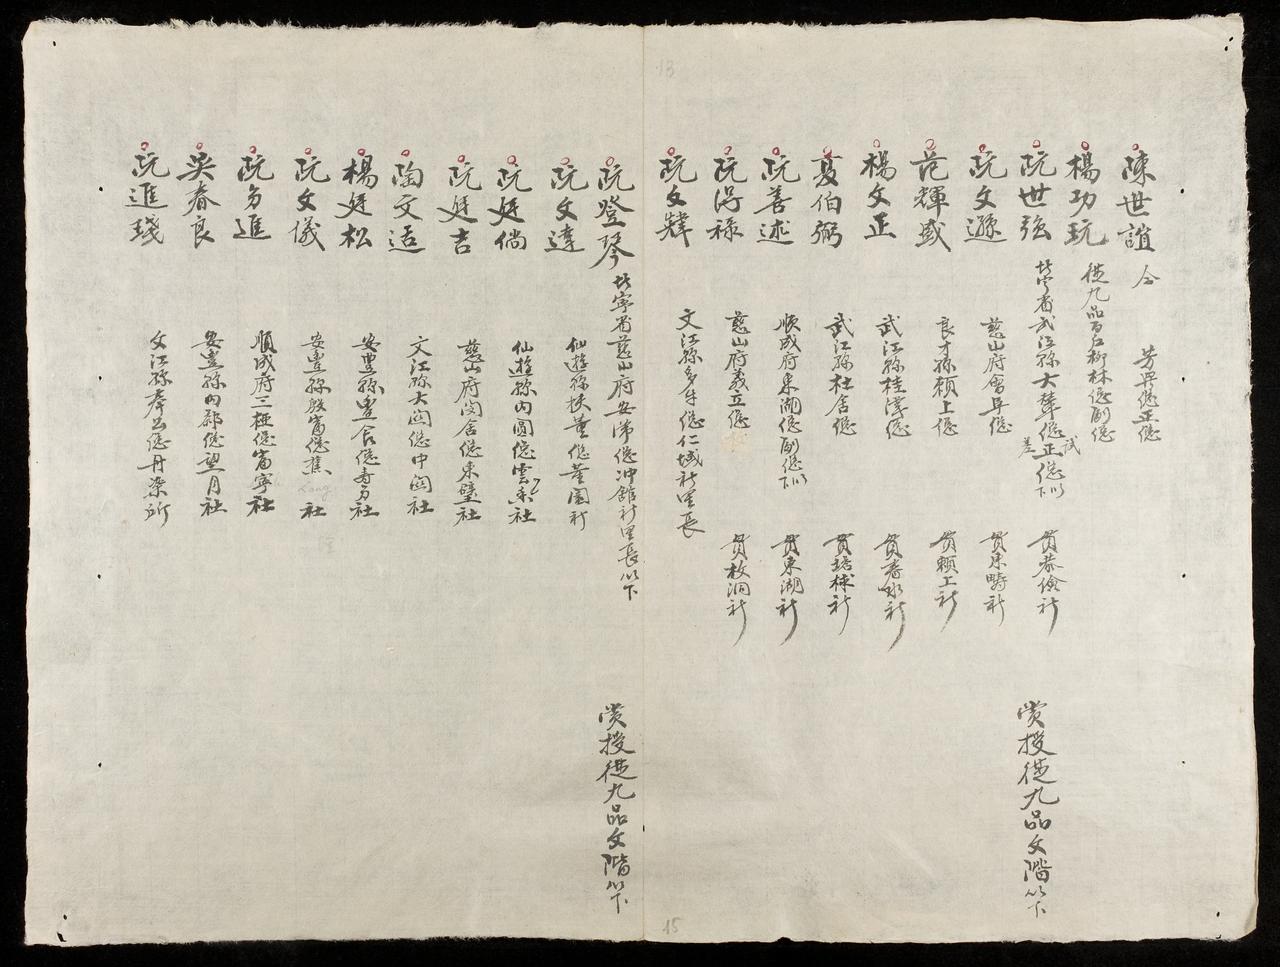 13
陳世誼 仝 芳畢總正總
楊功玩 從九品百戶柳林總副總
阮世弦 北宁省武江縣大 總正總 試差 以下 貫恭儉社 賞授從九品文階以下
阮文遜 慈山府會阜總 貫東疇社
范輝盛 良才縣賴上總 貫賴上社
楊文正 武江縣桂 總 貫春水社
夏伯弼 武江縣杜舍總 貫 社
阮善述 順成府東湖總副總以下 貫東湖社
阮得祿 慈山府義立總 貫枚洞社
阮文 文江縣多牛總仁域社里長
阮登琴 北寧省慈山府安 總冲館社里長以下 賞授從九品文階以下
阮文達 仙遊縣扶董總董園社
阮廷倘 仙遊縣內圓總雲 社
阮廷吉 慈山府閔舍總東壁社
陶文适 文江縣大關總中關社
楊廷松 安豊縣豊舍總壽力社
阮文儀 安豊縣殷富總蕉 社
阮力進 順成府三極總富寧社
吳春良 安豊縣內郡總望月社
阮進 文江縣奉公總丹染所
15